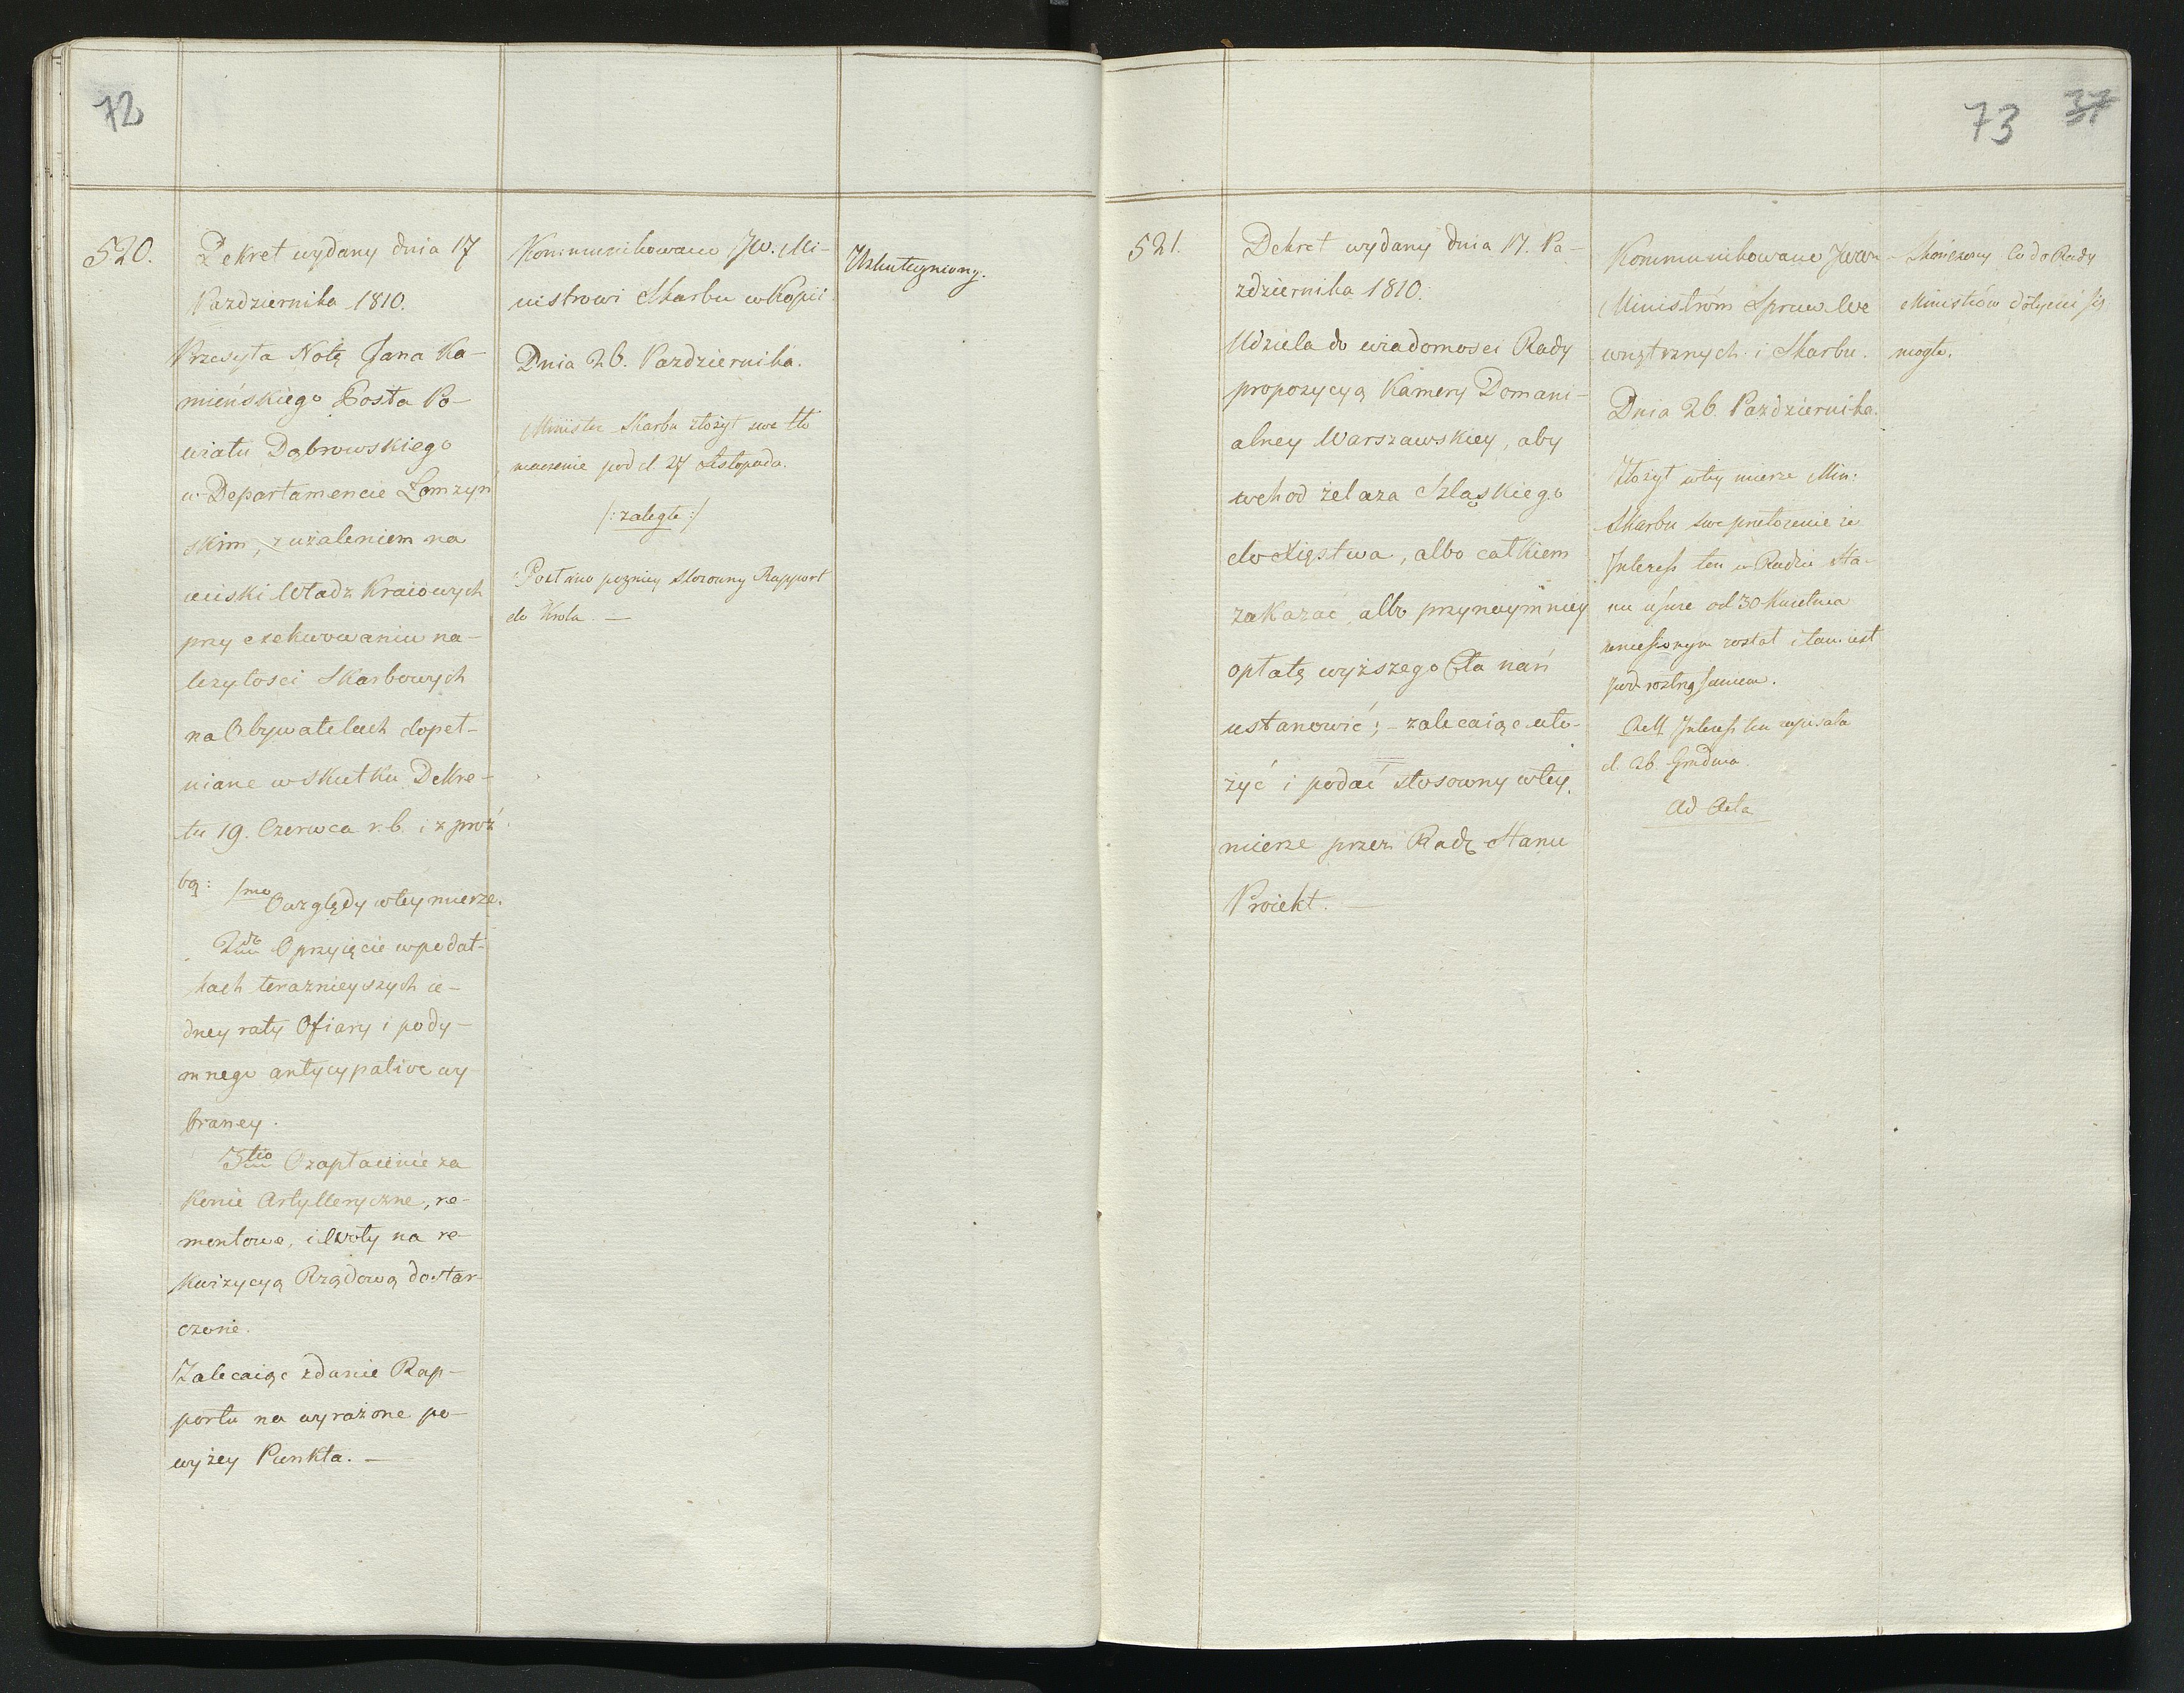 72
520.
Dekret wydany dnia 17
Pazdziernika 1810.
Przesyła Notę Jana Ka-
mieńskiego Posła Po-
wiatu Dąbrowskiego
w Departamencie Łomzyn
skim, z użaleniem na
uciski Władz Kraiowych
przy exekwowaniu na-
lezytosci Skarbowych
na Obywatelach dopeł-
niane w skutku Dekre-
tu 19. Czerwca r.b. i z proź
bą: 1mo O względy w tey mierze.
2do O przyięcie w podat-
kach teraznieyszych ie-
dney raty Ofiary i pody-
mnego antycypative wy
braney.
3tio O zapłacenie za
Konie Artylleryczne, re-
montowe, i Woły na re-
kwizycyą Rządową dostar-
czone.
Zalecaiąc zdanie Rap-
portu na wyrażone po-
wyżey Punkta. —
Kommunikowano JW. Mi-
nistrowi Skarbu w Kopii
Dnia 26. Pazdziernika.
Minister Skarbu złożył swe tło
maczenie pod d. 27 Listopada.
/: zaległe :/
Posłano pozniey stosowny Rapport
do Krola. —
Uskuteczniony.
73 37
521.
Dekret wydany dnia 17. Pa-
zdziernika 1810.
Udziela do wiadomosci Rady
propozycyą Kamery Domani-
alney Warszawskiey, aby
wchod żelaza Szląskiego
do Xięstwa, albo całkiem
zakazać, albo przynaymniey
opłatę wyższego Cła nań
ustanowić; – zalecaiąc uło-
żyć i podać stosowny w tey
mierze przez Radę Stanu
Proiekt. —
Kommunikowano JWW
Ministróm Spraw We
wnętrznych i Skarbu.
Dnia 26. Pazdziernika.
Złożył w tey mierze Min:
Skarbu swe przełożenie że
Interess ten w Radzie Sta-
nu od 30 Kwietnia
wniesionym został i tam iest
pod roztrząsaniem.
Interess ten zapisała
d. 26. Grudnia
Ad Acta
Skończony Co do Rady
Ministrów dotyczeć się
mogło.